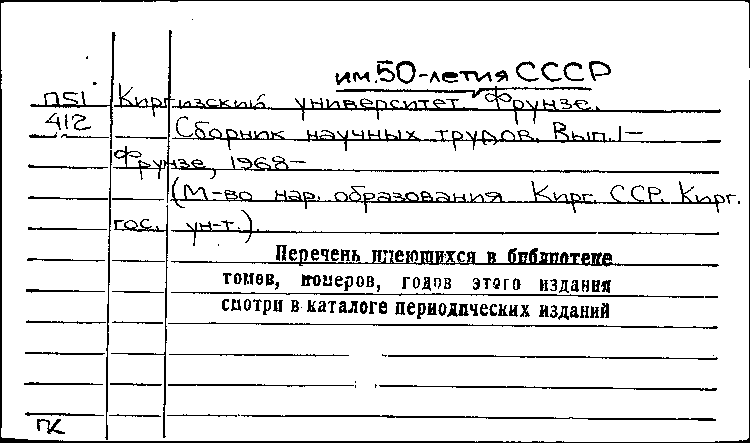 им. 50-летия СССР
П51 Киргизский университет Фрунзе.
412 Сборник научных трудов. Вып. 1-
Фрунзе, 1968-
(М-во нар. образования Кирг. ССР. Кирг.
гос. ун-т.).
Перечень имеющихся в библиотеке
томов, номеров, годов этого издания
смотри в каталоге периодических изданий
ПК